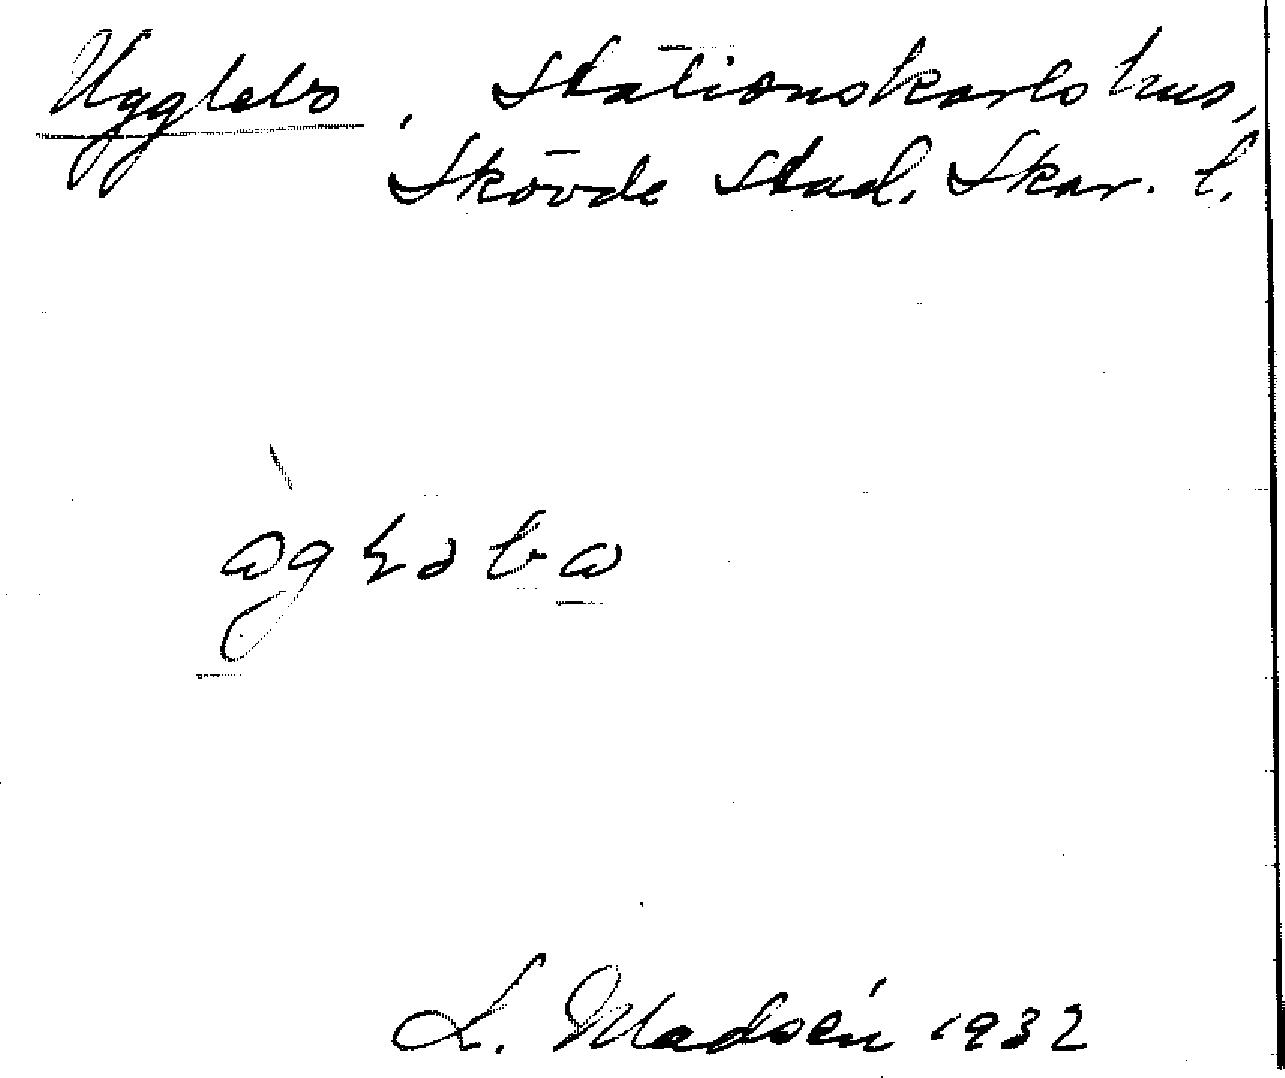 Ugglebo, Stationskarls hus,
Skövde stad. Skar. l.
L. Madsén 1932